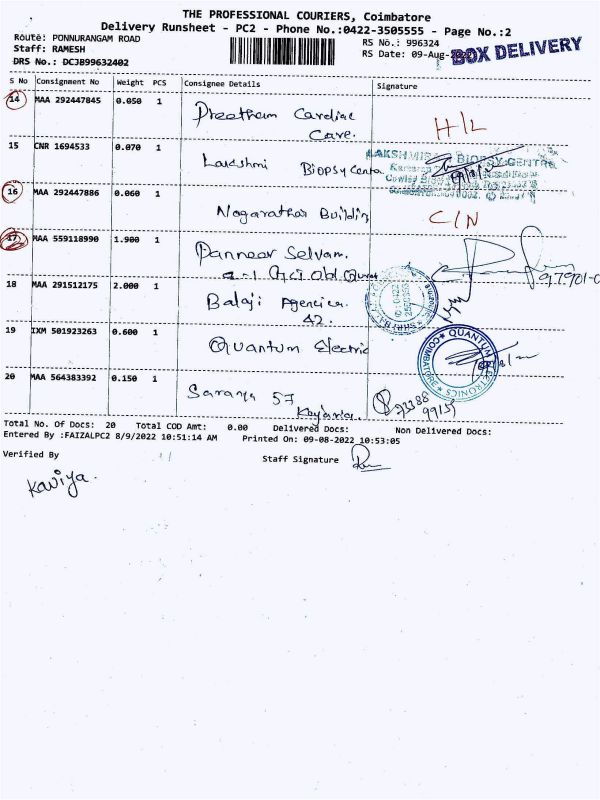 THE PROFESSIONAL COURIERS, Coimbatore
Delivery Runsheet - PC2 - Phone No.:0422-3505555 - Page No.:2
Route: PONNURANGAM ROAD
RS No.: 996324
Staff: RAMESH
RS Date: 09-Aug-
BOX DELIVERY
DRS No.: DC3B99632402
S No Consignment No Weight PCS Consignee Details Signature
14 MAA 292447845 0.050 1 Preetham Cardiac
Care. H/L
15 CNR 1694533 0.070 1 Lakshmi Biopsy Centa
LAKSHMI BIOPSY CENTRE
16 MAA 292447886 0.060 1 Nagarathar Building C/N
17 MAA 559118990 1.900 1 Panneer Selvam.
18 MAA 291512175 2.000 1 Balaji Agencies.
42.
19 IXM 501923263 0.600 1 Quantum Electric
QUANTUM ELECTRONICS
COIMBATORE
20 MAA 564383392 0.150 1 Saranya 57
73388
Total No. Of Docs: 20 Total COD Amt: 0.00 Delivered Docs: Non Delivered Docs:
Entered By :FAIZALPC2 8/9/2022 10:51:14 AM Printed On: 09-08-2022 10:53:05
Verified By Staff Signature
Kaviya.